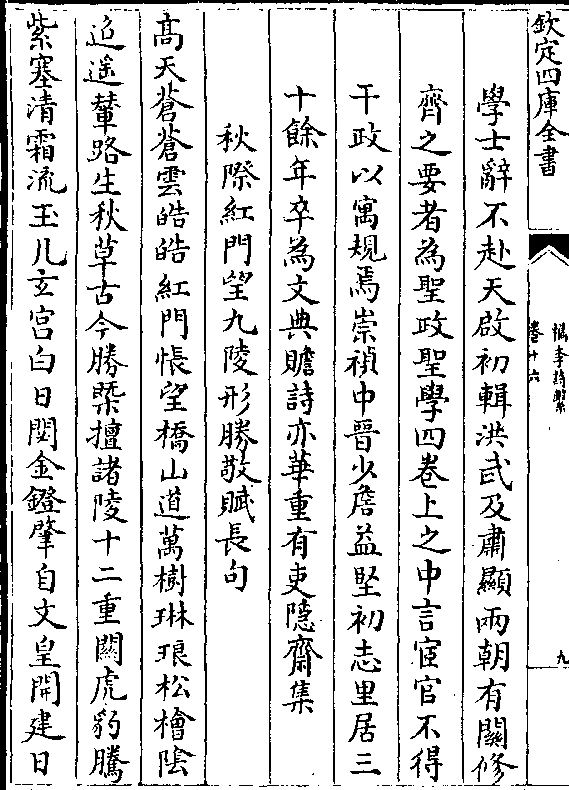 欽定四庫全書
檇李詩繫
卷十六
九
學士辭不赴天啟初輯洪武及肅顯兩朝有關修
齊之要者為聖政聖學四卷上之中言宦官不得
干政以寓規焉崇禎中晉少詹益堅初志里居三
十餘年卒為文典贍詩亦華重有吏隱齋集
秋際紅門望九陵形勝敬賦長句
高天蒼蒼雲皓皓紅門悵望橋山道萬樹琳琅松檜陰
迢遥輦路生秋草古今勝槩擅諸陵十二重關虎豹騰
紫塞清霜流玉几玄宫白日閟金鐙肇自文皇開建日